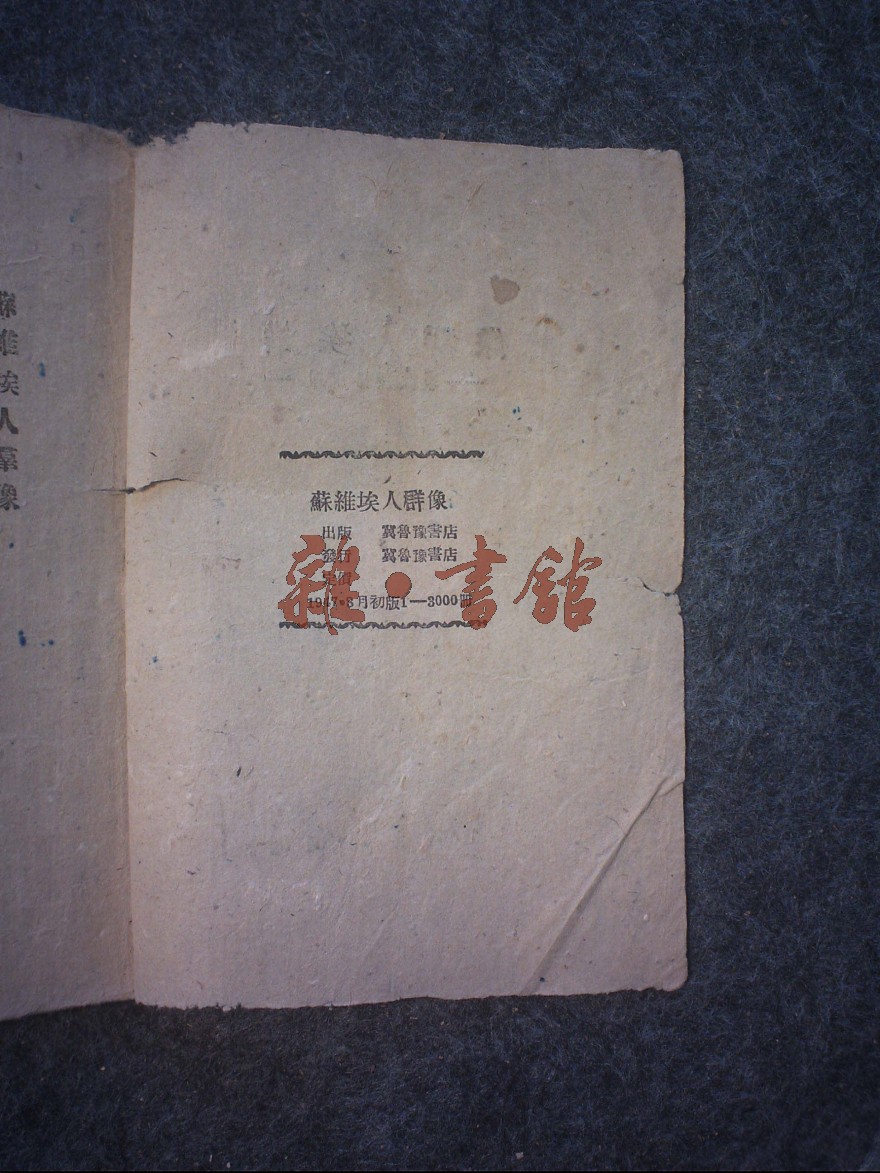 蘇維埃人羣像
蘇維埃人群像
出版 冀魯豫書店
發行 冀魯豫書店
定價
1947·8月初版1—3000冊
雜·書館